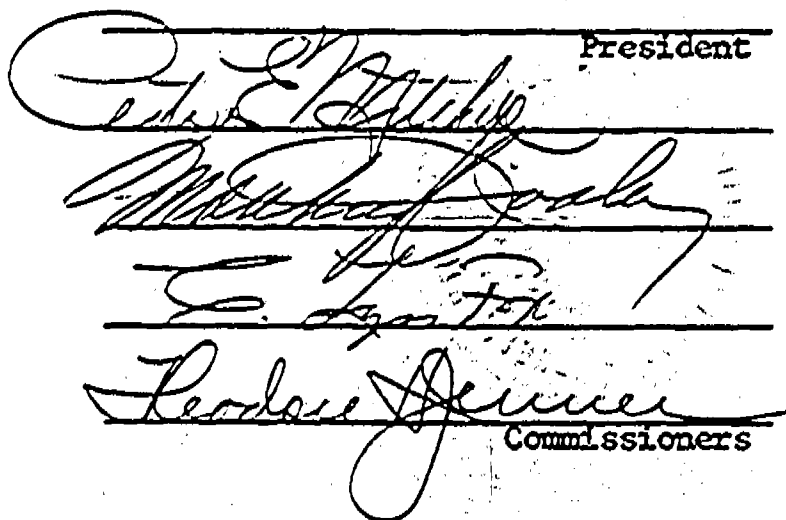 President
Peter E Mitchell
Matthew J. Dooley
Lyn Fox
Theodore Jenner
Commissioners